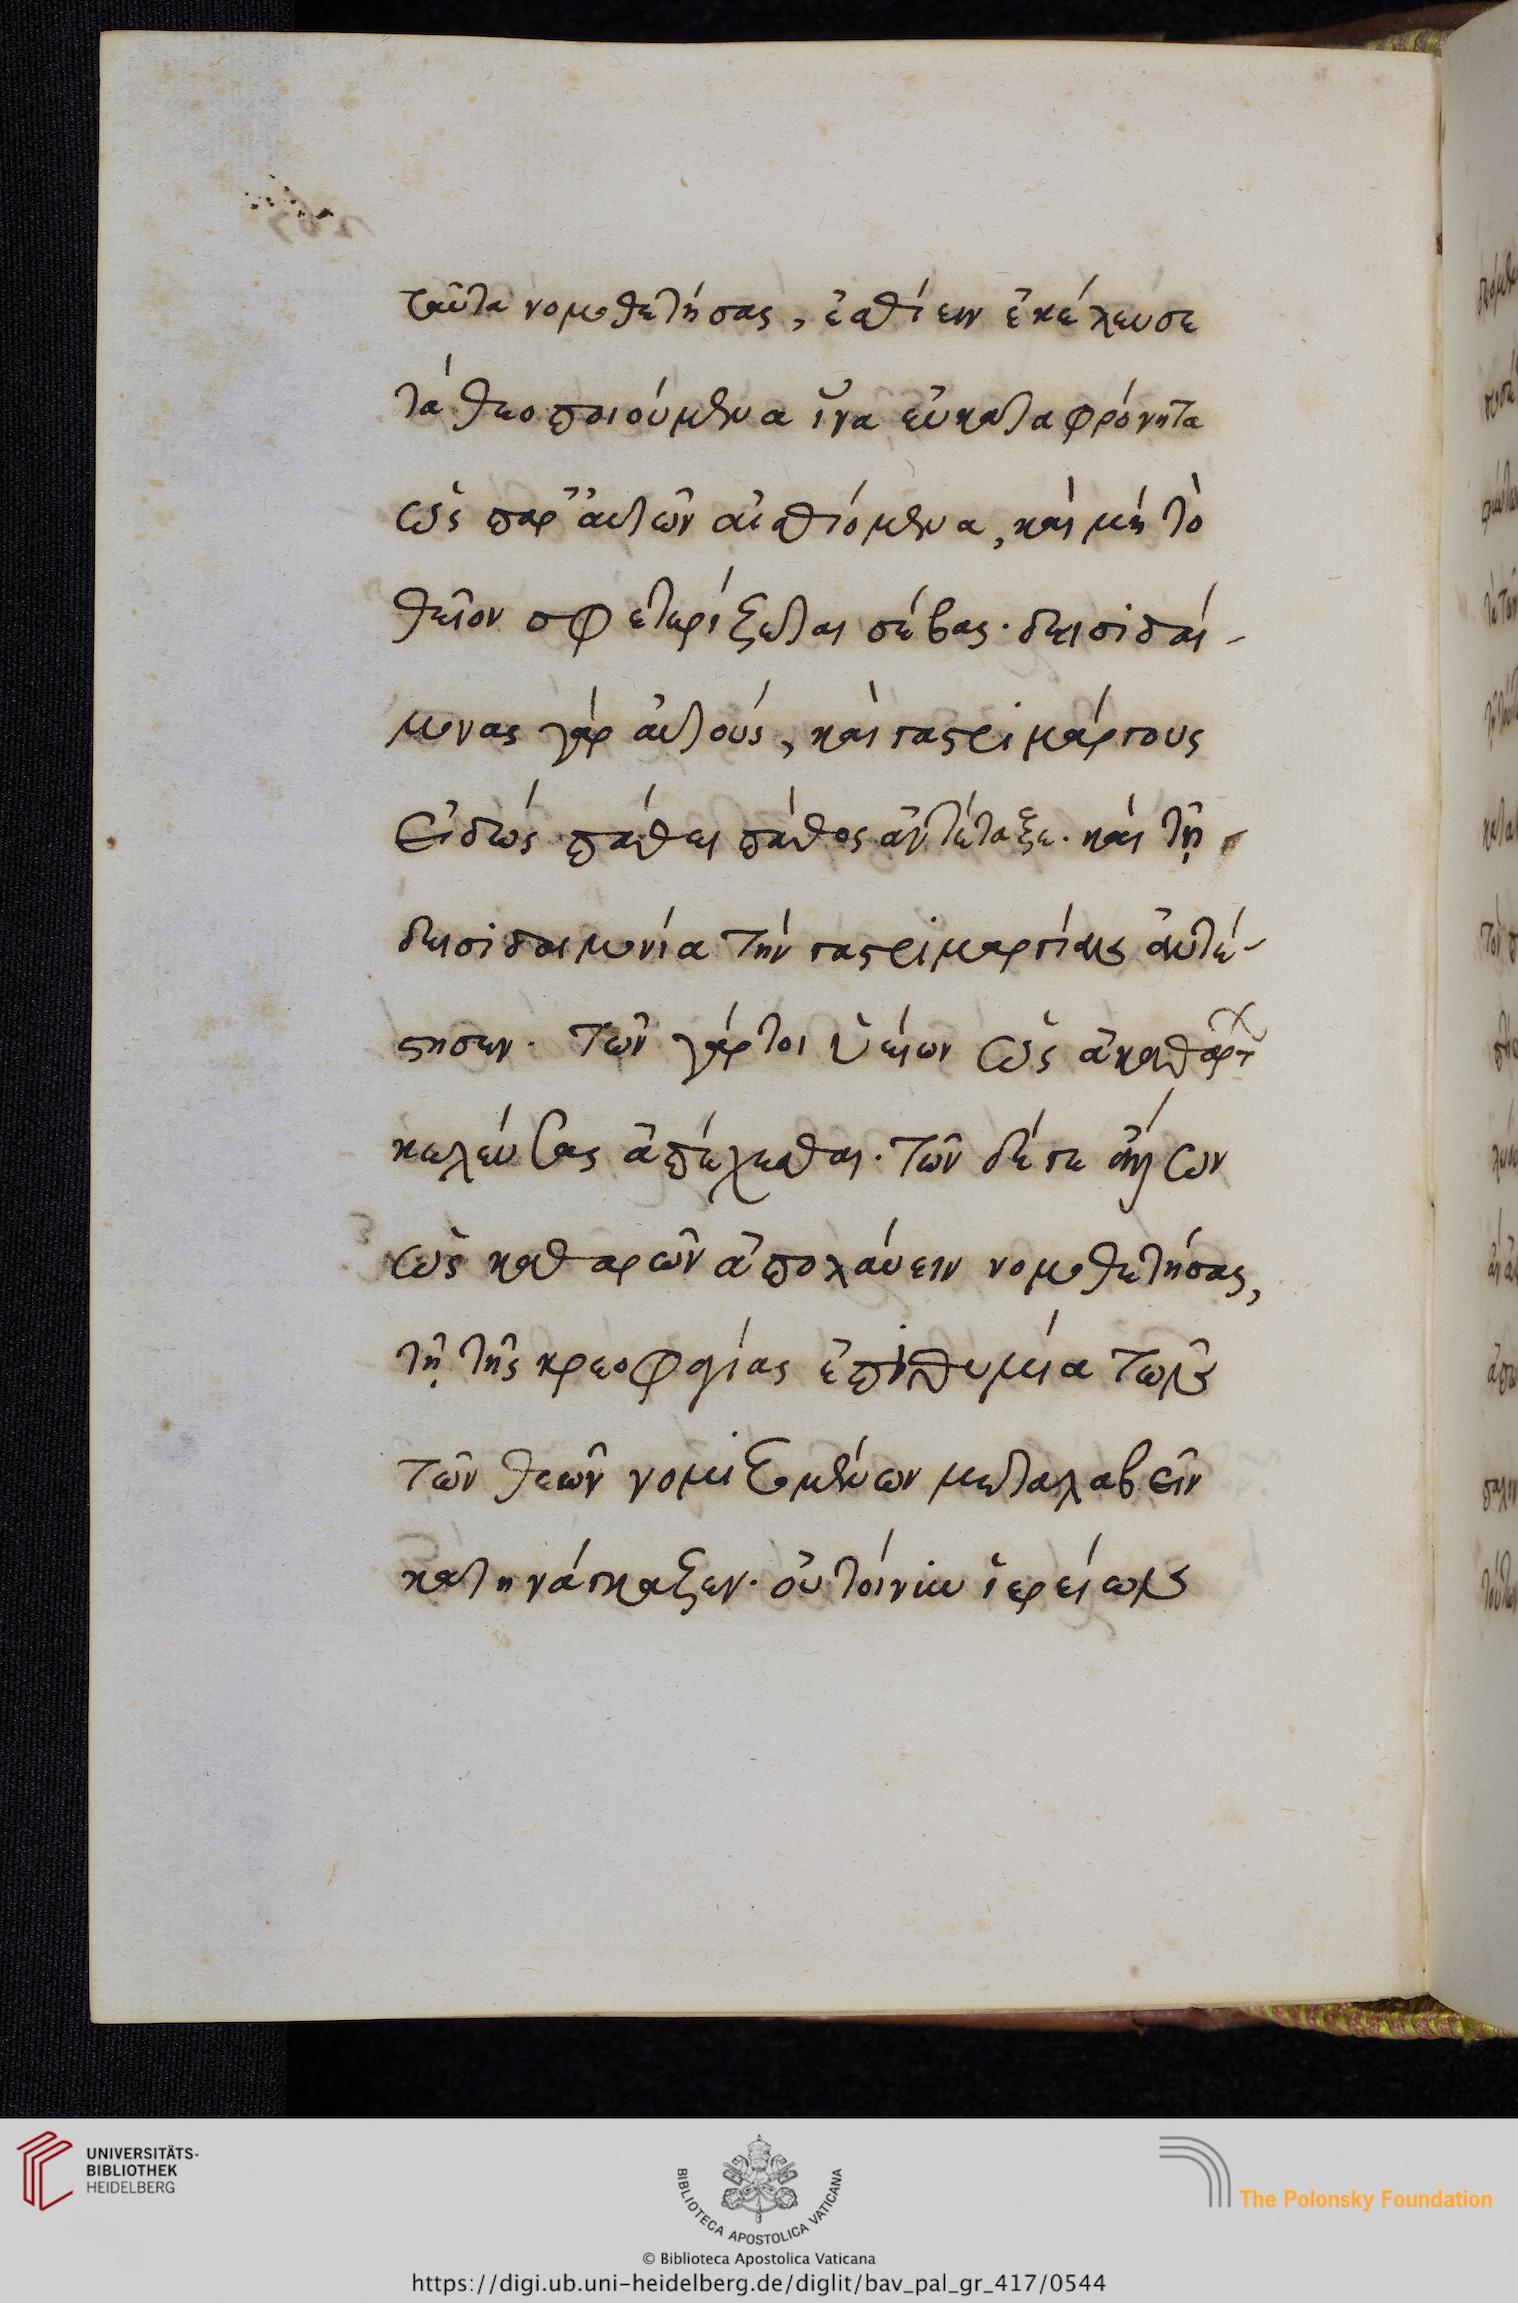 ταῦτα νομοθετήσας, ἐσθίειν ἐκέλευσε
τὰ θεοποιούμενα ἵνα εὐκαταφρόνητα
ὡς παρ' αὐτῶν αἰσθιόμενα, καὶ μὴ τὸ
θεῖον σφετερίξεται σέβας· δεισιδαί-
μονας γὰρ αὐτοὺς, καὶ γαστριμάργους
εἰδὼς πάθει πάθος ἀντέταξε. καὶ τῇ
δεισιδαιμονία τὴν γαστριμαργίαν ἀντέ-
στησεν. τῶν γάρ τοι ὑείων ὡς ἀκαθάρτων
κελεύσας ἀπέχεσθαι. τῶν δέ γε ἄλλων
ὡς καθαρῶν ἀπολαύειν νομοθετήσας,
τῇ τῆς κρεοφαγίας ἐπιθυμία τῶν
τῶν θεῶν νομιζομένων μεταλαβεῖν
κατηνάγκαξεν. οὐ τοίνυν ἱερείων
UNIVERSITÄTS-
BIBLIOTHEK
HEIDELBERG
BIBLIOTECA APOSTOLICA VATICANA
The Polonsky Foundation
© Biblioteca Apostolica Vaticana
https://digi.ub.uni-heidelberg.de/diglit/bav_pal_gr_417/0544